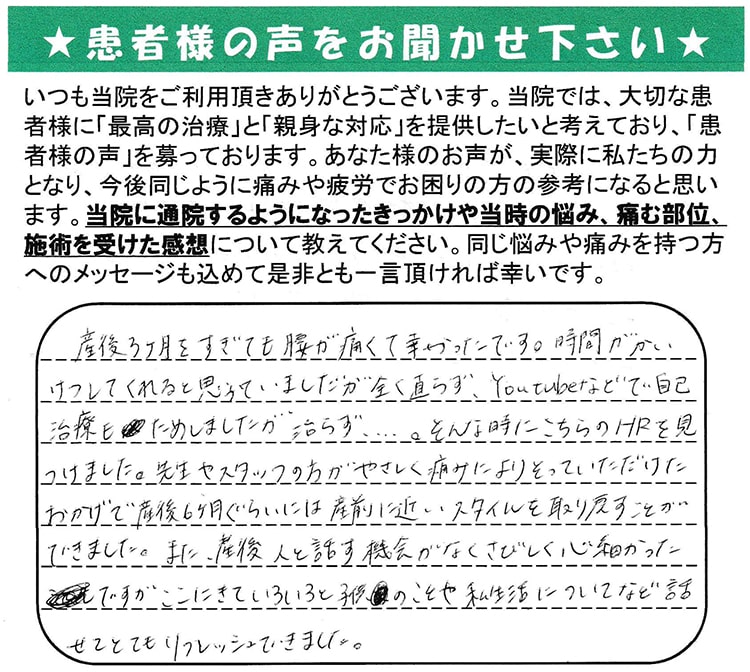 ★患者様の声をお聞かせ下さい★
いつも当院をご利用頂きありがとうございます。当院では、大切な患
者様に「最高の治療」と「親身な対応」を提供したいと考えており、「患
者様の声」を募っております。あなた様のお声が、実際に私たちの力
となり、今後同じように痛みや疲労でお困りの方の参考になると思い
ます。当院に通院するようになったきっかけや当時の悩み、痛む部位、
施術を受けた感想について教えてください。同じ悩みや痛みを持つ方
へのメッセージも込めて是非とも一言頂ければ幸いです。
産後3ヶ月をすぎても腰が痛くて辛かったです。時間がかい
けつしてくれると思っていましだが全く直らず、Youtubeなどで自己
治療も ためしましたが治らず、...。そんな時にこちらのHRを見
つけました。先生やスタッフの方がやさしく痛みによりそっていただけた
おかげで産後6ヶ月ぐらいには産前に近いスタイルを取り戻すことが
できました。また、産後人と話す機会がなくさびしく心細かった
ですがここにきていろいろと子供のことや私生活についてなど話
せてとてもリフレッシュできました。